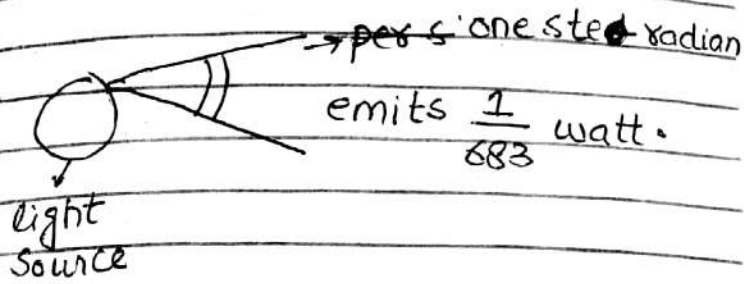 → per s one ste radian
emits 1/683 watt.
light
source